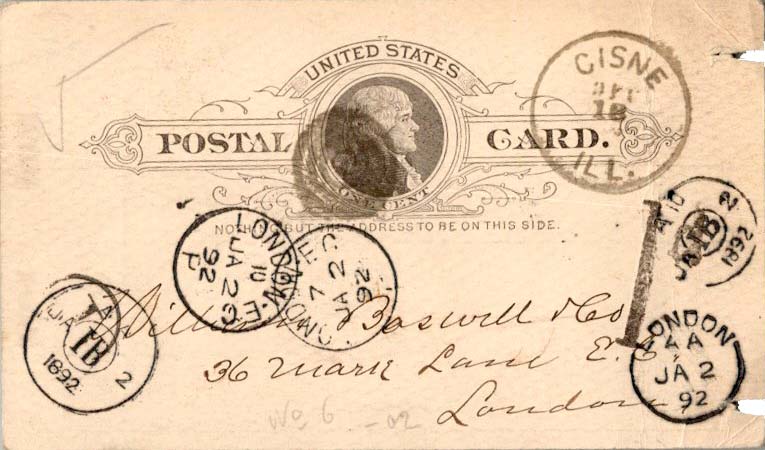 UNITED STATES
POSTAL CARD.
ONE CENT
NOTHING BUT THE ADDRESS TO BE ON THIS SIDE.
CISNE
18
ILL.
LONDON. E.C
10
JA 2
92
P
7
JA 2
92
A 10
JA 2
1B
1892
JA 2
1B
1892
LONDON
A A
JA 2
92
William Boswell & Co
36 Mark Lane E.C.
London
No 6